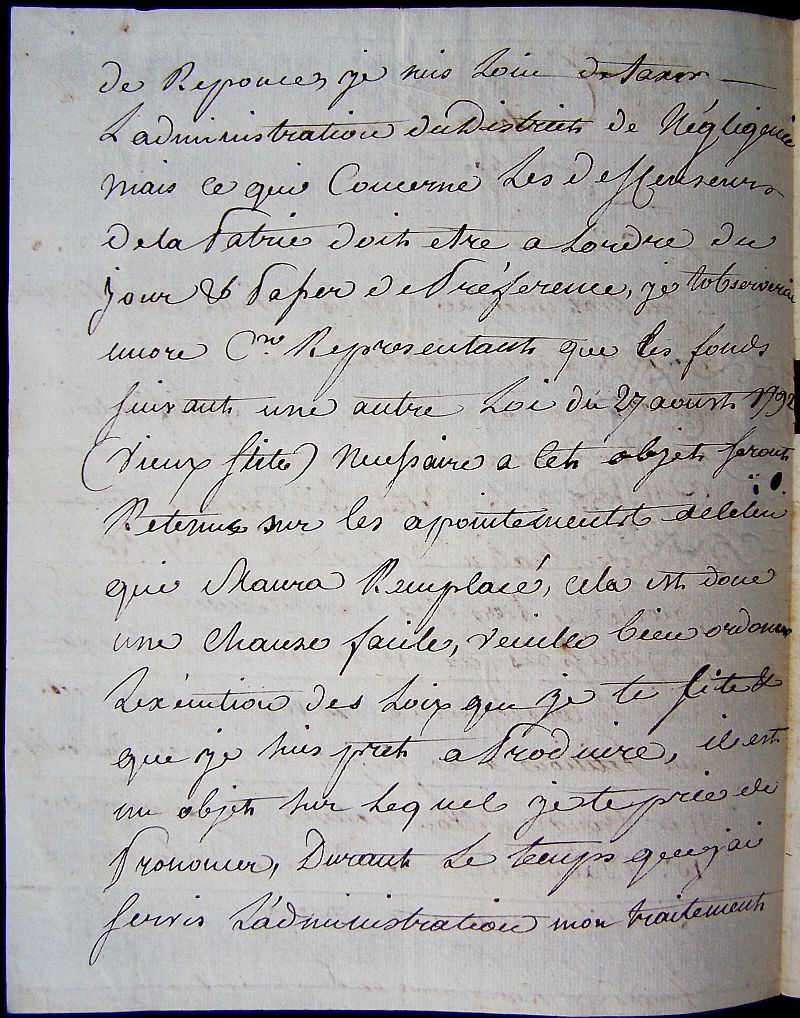 de Reponce, je suis Loin de taxer
L'administration du District de Négligence
mais ce qui Concerne Les deffenseurs
de la Patrie doit etre a Lordre du
jour & Passer de Préference, je tobserverai
encore Cn. Representant que les fonds
suivant une autre Loi du 27 aoust 1792
(vieux stile) Necessaire a Cet objet seront
Retenus sur les apointements de celui
que Maura Remplacé, cela est donc
une chause facile, veuille bien ordonner
Lexécution des Loix que je te site &
que je suis pret a Produire, il est
un objet sur Lequel je te prie de
Prononcer, Durant Le temps que j'ai
servis L'administration mon traitement